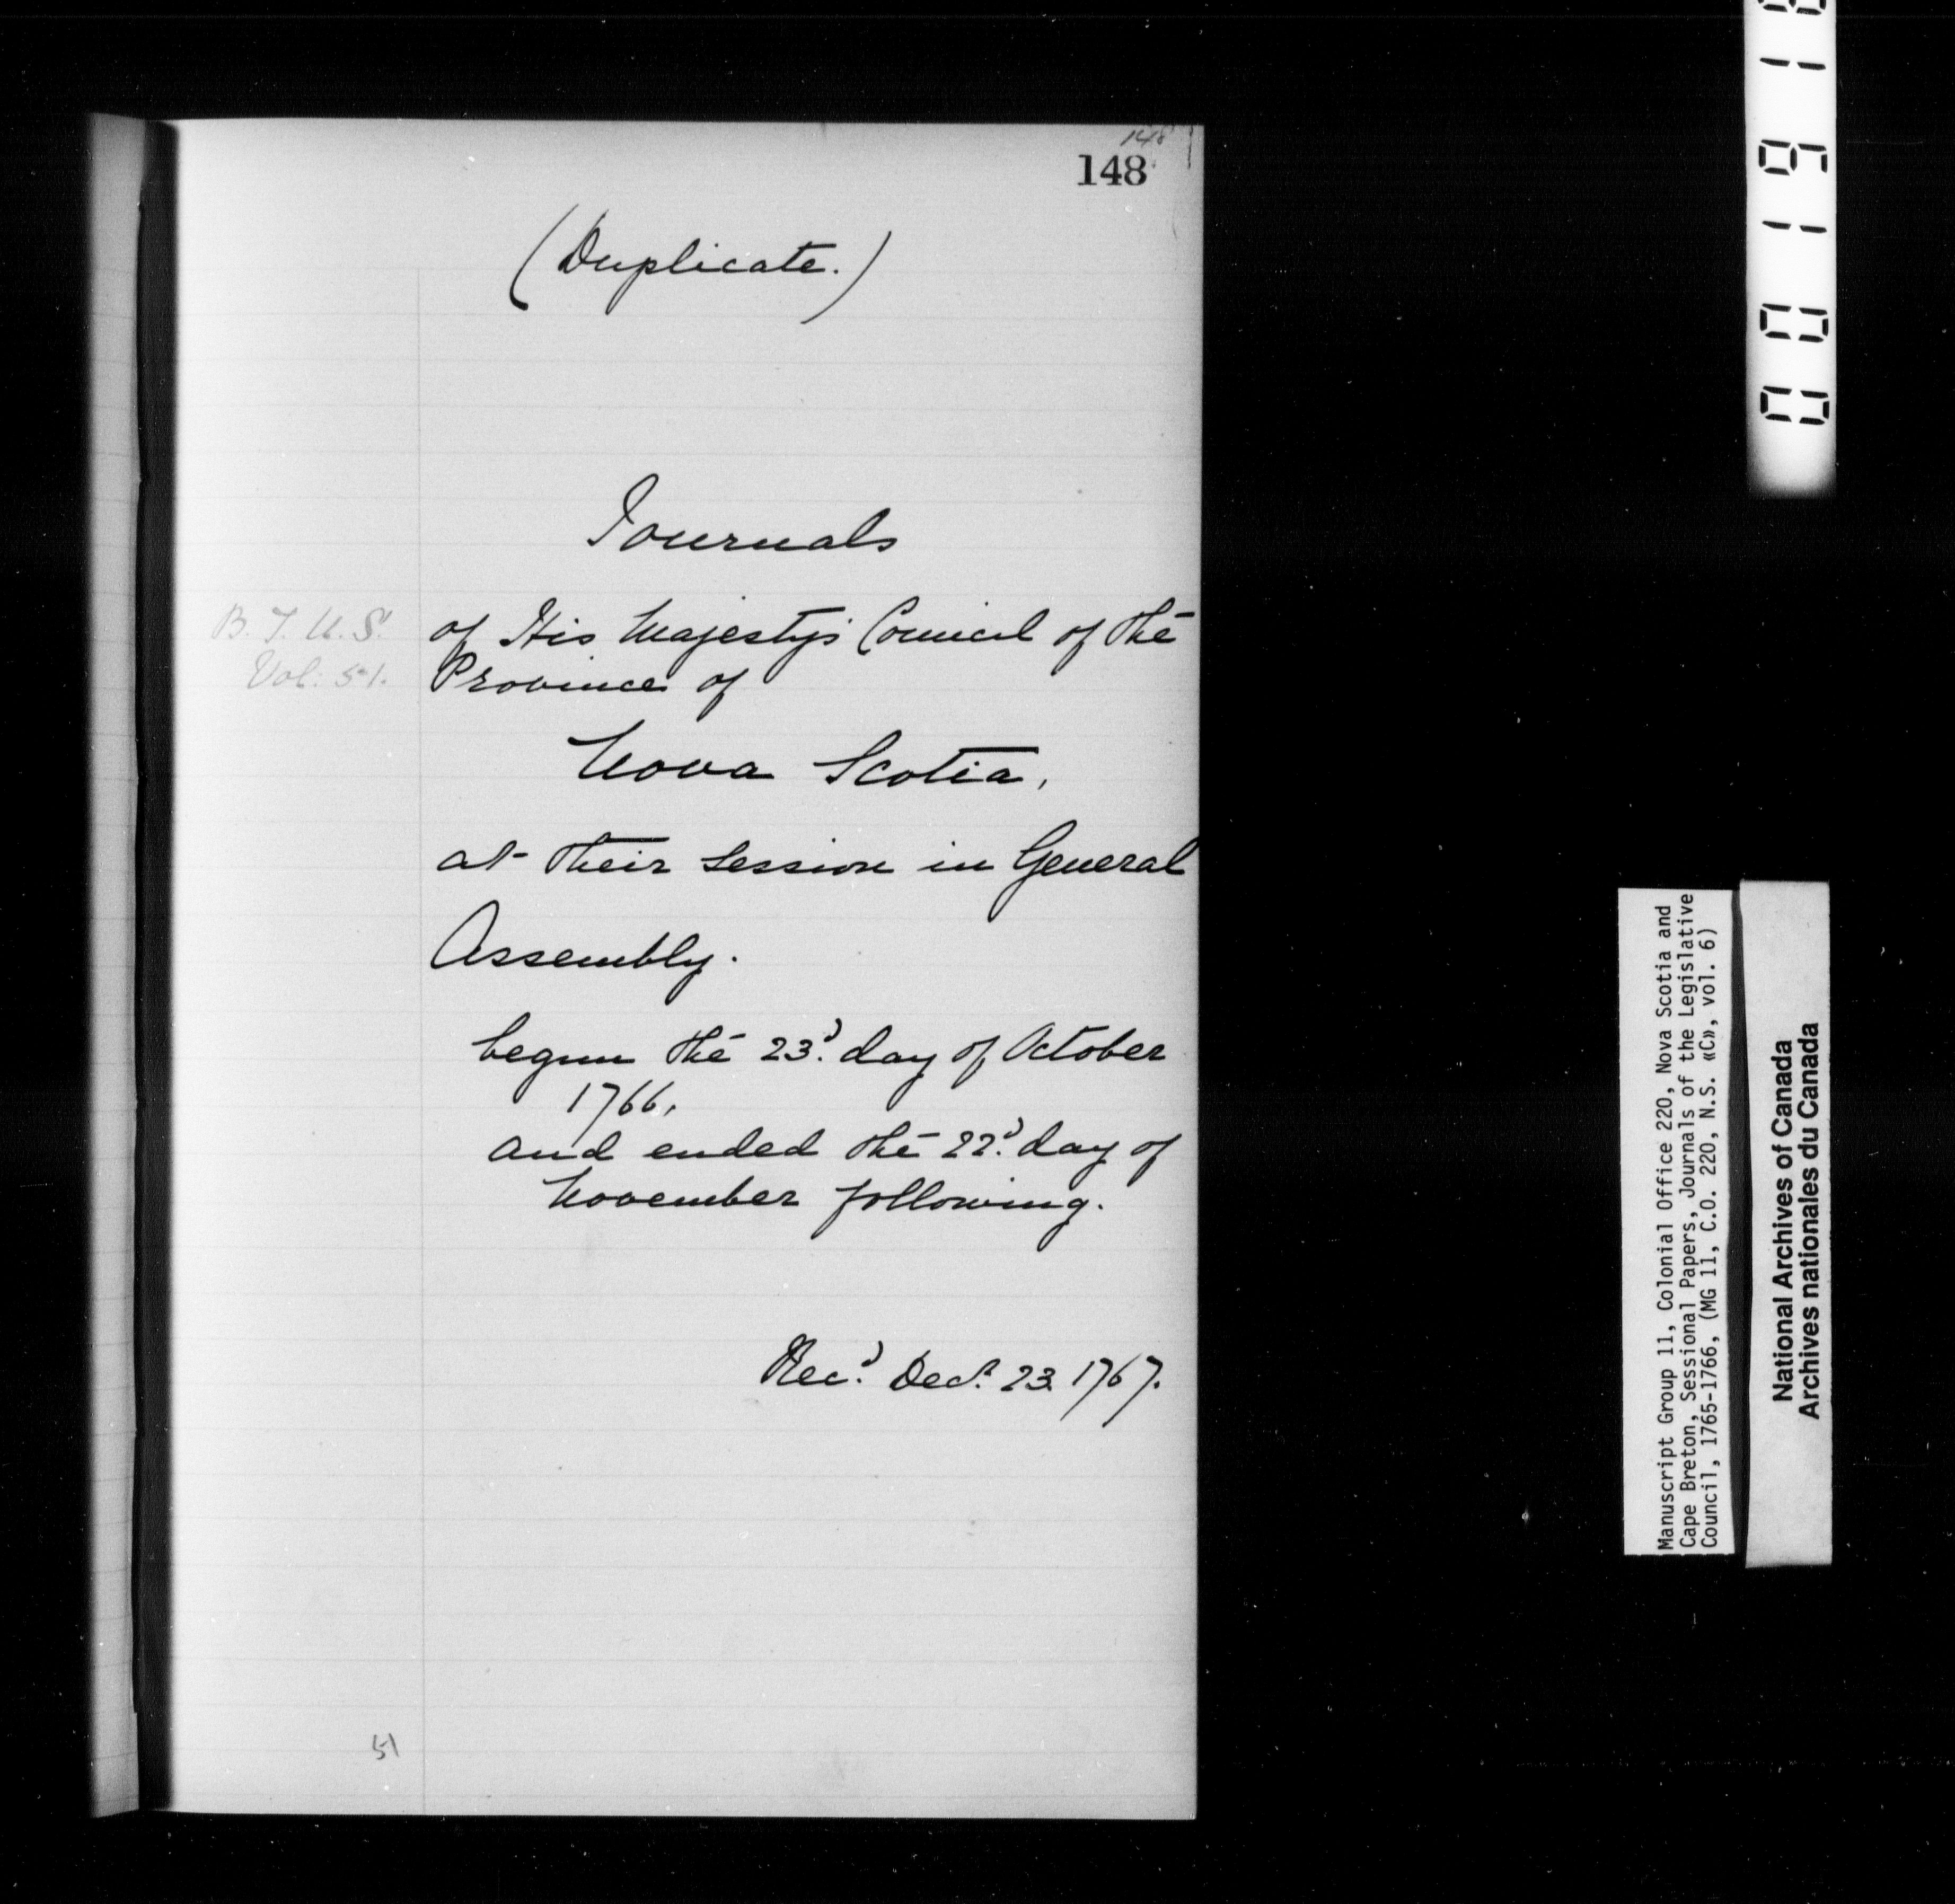 148
148
(Duplicate.)
Journals
B. T. N. S.
Vol: 51.
of His Majesty's Council of the
Province of
Nova Scotia,
at their Session in General
Assembly.
begun the 23d. day of October
1766,
and ended the 22d. day of
November following.
Recd. Decr. 23. 1767.
51
Manuscript Group 11, Colonial Office 220, Nova Scotia and
Cape Breton, Sessional Papers, Journals of the Legislative
Council, 1765-1766, (MG 11, C.O. 220, N.S. «C», vol. 6)
National Archives of Canada
Archives nationales du Canada